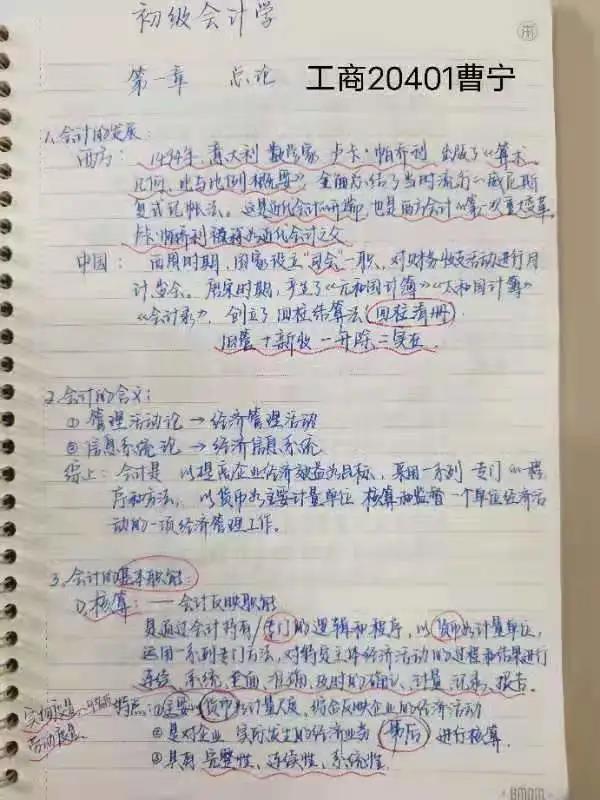 初级会计学
第一章 总论 工商20401曹宁
1.会计的发展:
西方: 1494年,意大利数学家 卢卡·帕乔利 出版了《算术、
几何、比与比例概要》,全面总结了当时流行的威尼斯
复式记帐法。这是近代会计的开端,也是西方会计的第一次重大变革。
卢卡·帕乔利被称为近代会计之父
中国: 西周时期,国家设立"司会"一职,对财务收支活动进行月
计岁会。唐宋时期,产生了《元和国计簿》《太和国计簿》
《会计录》,创立了四柱结算法(四柱清册)
旧管+新收-开除=实在.
2.会计的含义:
① 管理活动论 → 经济管理活动
② 信息系统论 → 经济信息系统
综上:会计是 以提高企业经济效益为目标,采用一系列 专门的程
序和方法,以货币为主要计量单位 核算和监督 一个单位经济活
动的一项经济管理工作。
3.会计的基本职能:
①.核算:——会计反映职能
是通过会计特有/专门的逻辑和程序,以货币为计量单位,
运用一系列专门方法,对特定主体经济活动的过程和结果进行
连续、系统、全面、准确、及时的确认、计量、记录、报告。
实物量度 特点:①主要以货币为计量尺度,综合反映企业的经济活动
劳动量度 ②是对企业 实际发生的经济业务 事后 进行核算.
③具有 完整性、连续性、系统性.